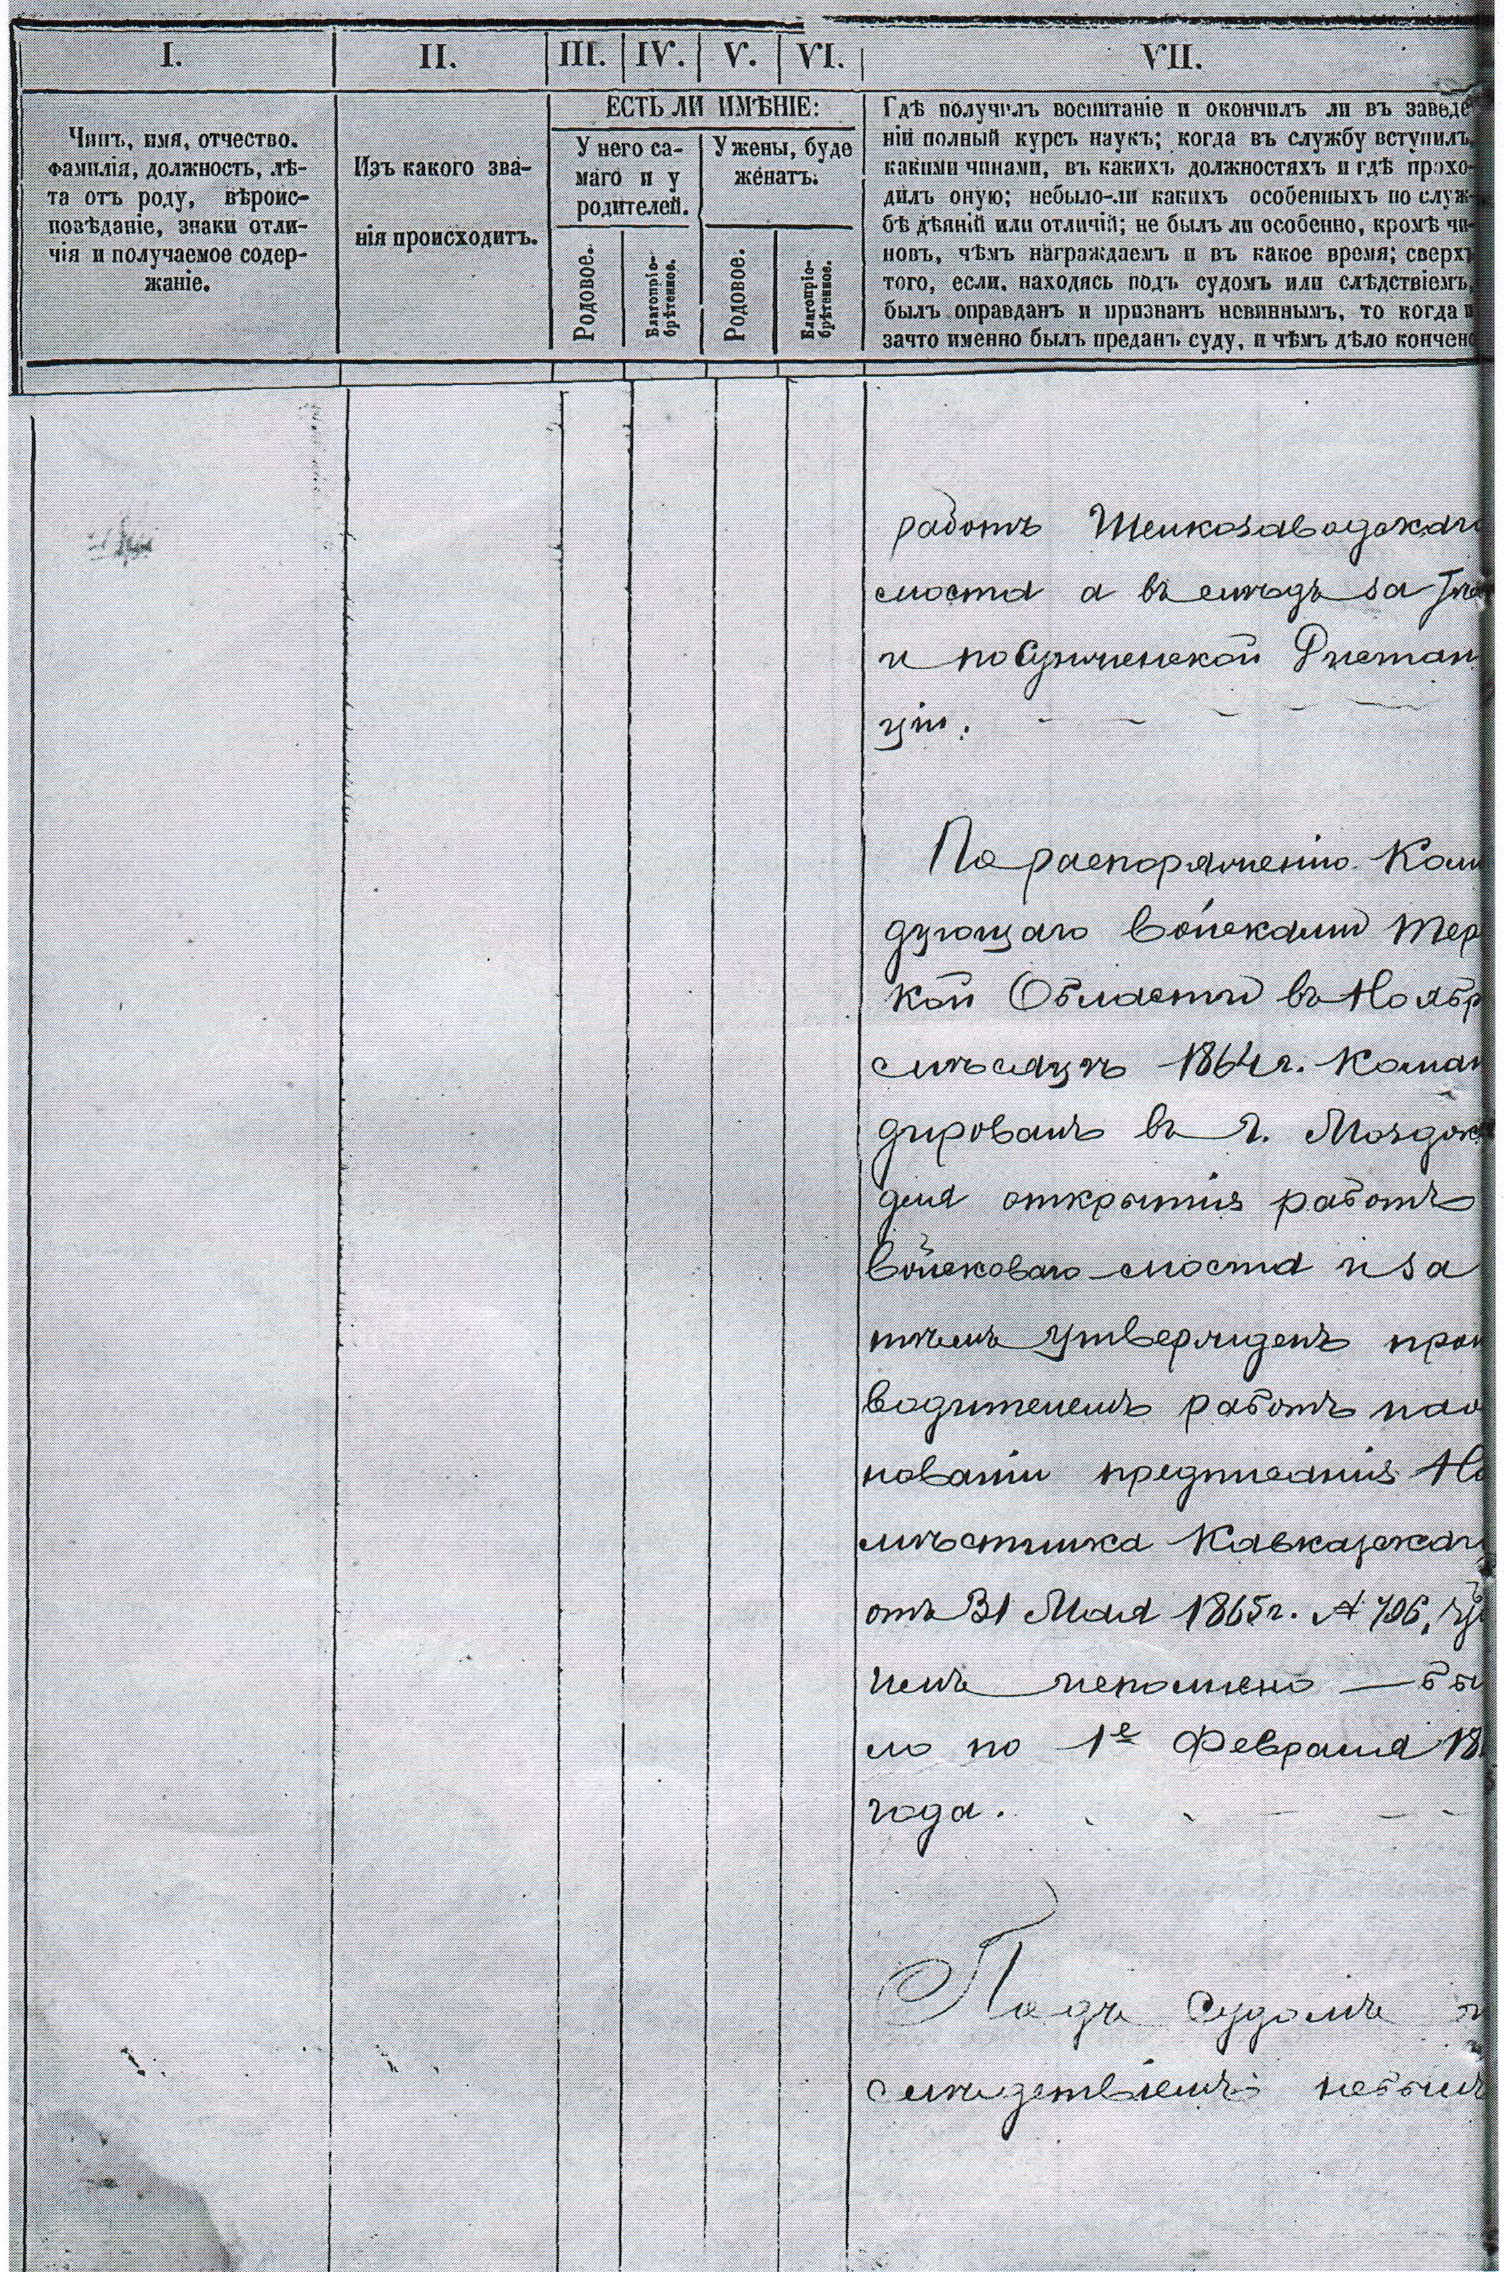 I.
II.
III.
IV.
V.
VI.
VII.
Чинъ, имя, отчество.
фамилія, должность, лѣ-
та отъ роду, вѣроис-
повѣданіе, знаки отли-
чія и получаемое содер-
жаніе.
Изъ какого зва-
нія происходитъ.
ЕСТЬ ЛИ ИМѢНІЕ:
У него са-
маго и у
родителей.
У жены, буде
женатъ.
Родовое.
Благопріо-
брѣтенное.
Родовое.
Благопріо-
брѣтенное.
Гдѣ получилъ воспитаніе и окончилъ ли въ заведе-
ній полный курсъ наукъ; когда въ службу вступилъ,
какими чинами, въ какихъ должностяхъ и гдѣ прохо-
дилъ оную; небыло-ли какихъ особенныхъ по служ-
бѣ дѣяній или отличій; не былъ ли особенно, кромѣ чи-
новъ, чѣмъ награждаемъ и въ какое время; сверхъ
того, если, находясь подъ судомъ или слѣдствіемъ,
былъ оправданъ и признанъ невиннымъ, то когда и
зачто именно былъ преданъ суду, и чѣмъ дѣло кончено
работъ Шелкозаводскаго
моста а въ слѣдъ за
и по Сунженской Дистан
ціи.
По распоряженію Коман
дующаго войсками Терс
кой Области въ Ноябр
мѣсяцѣ 1864 г. Коман
дированъ въ г. Моздокъ
для открытія работъ
войсковаго моста и за
тѣмъ утвержденъ прои
водителемъ работъ на ос
нованіи предписанія На
мѣстника Кавказскаго
отъ 31 Мая 1865 г. №
исполнено бы
ло по 1е Февраля 18
года.
Подъ судомъ и
слѣдствіемъ небылъ